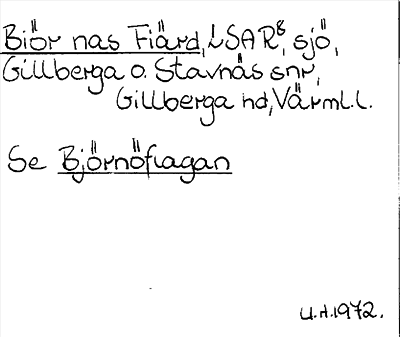 Biör nas Fiärd, LSAR⁸, sjö,
Gillberga o. Stavnäs snr,
Gillberga hd, Värml.l.
Se Björnöflagan
U.H.1972.